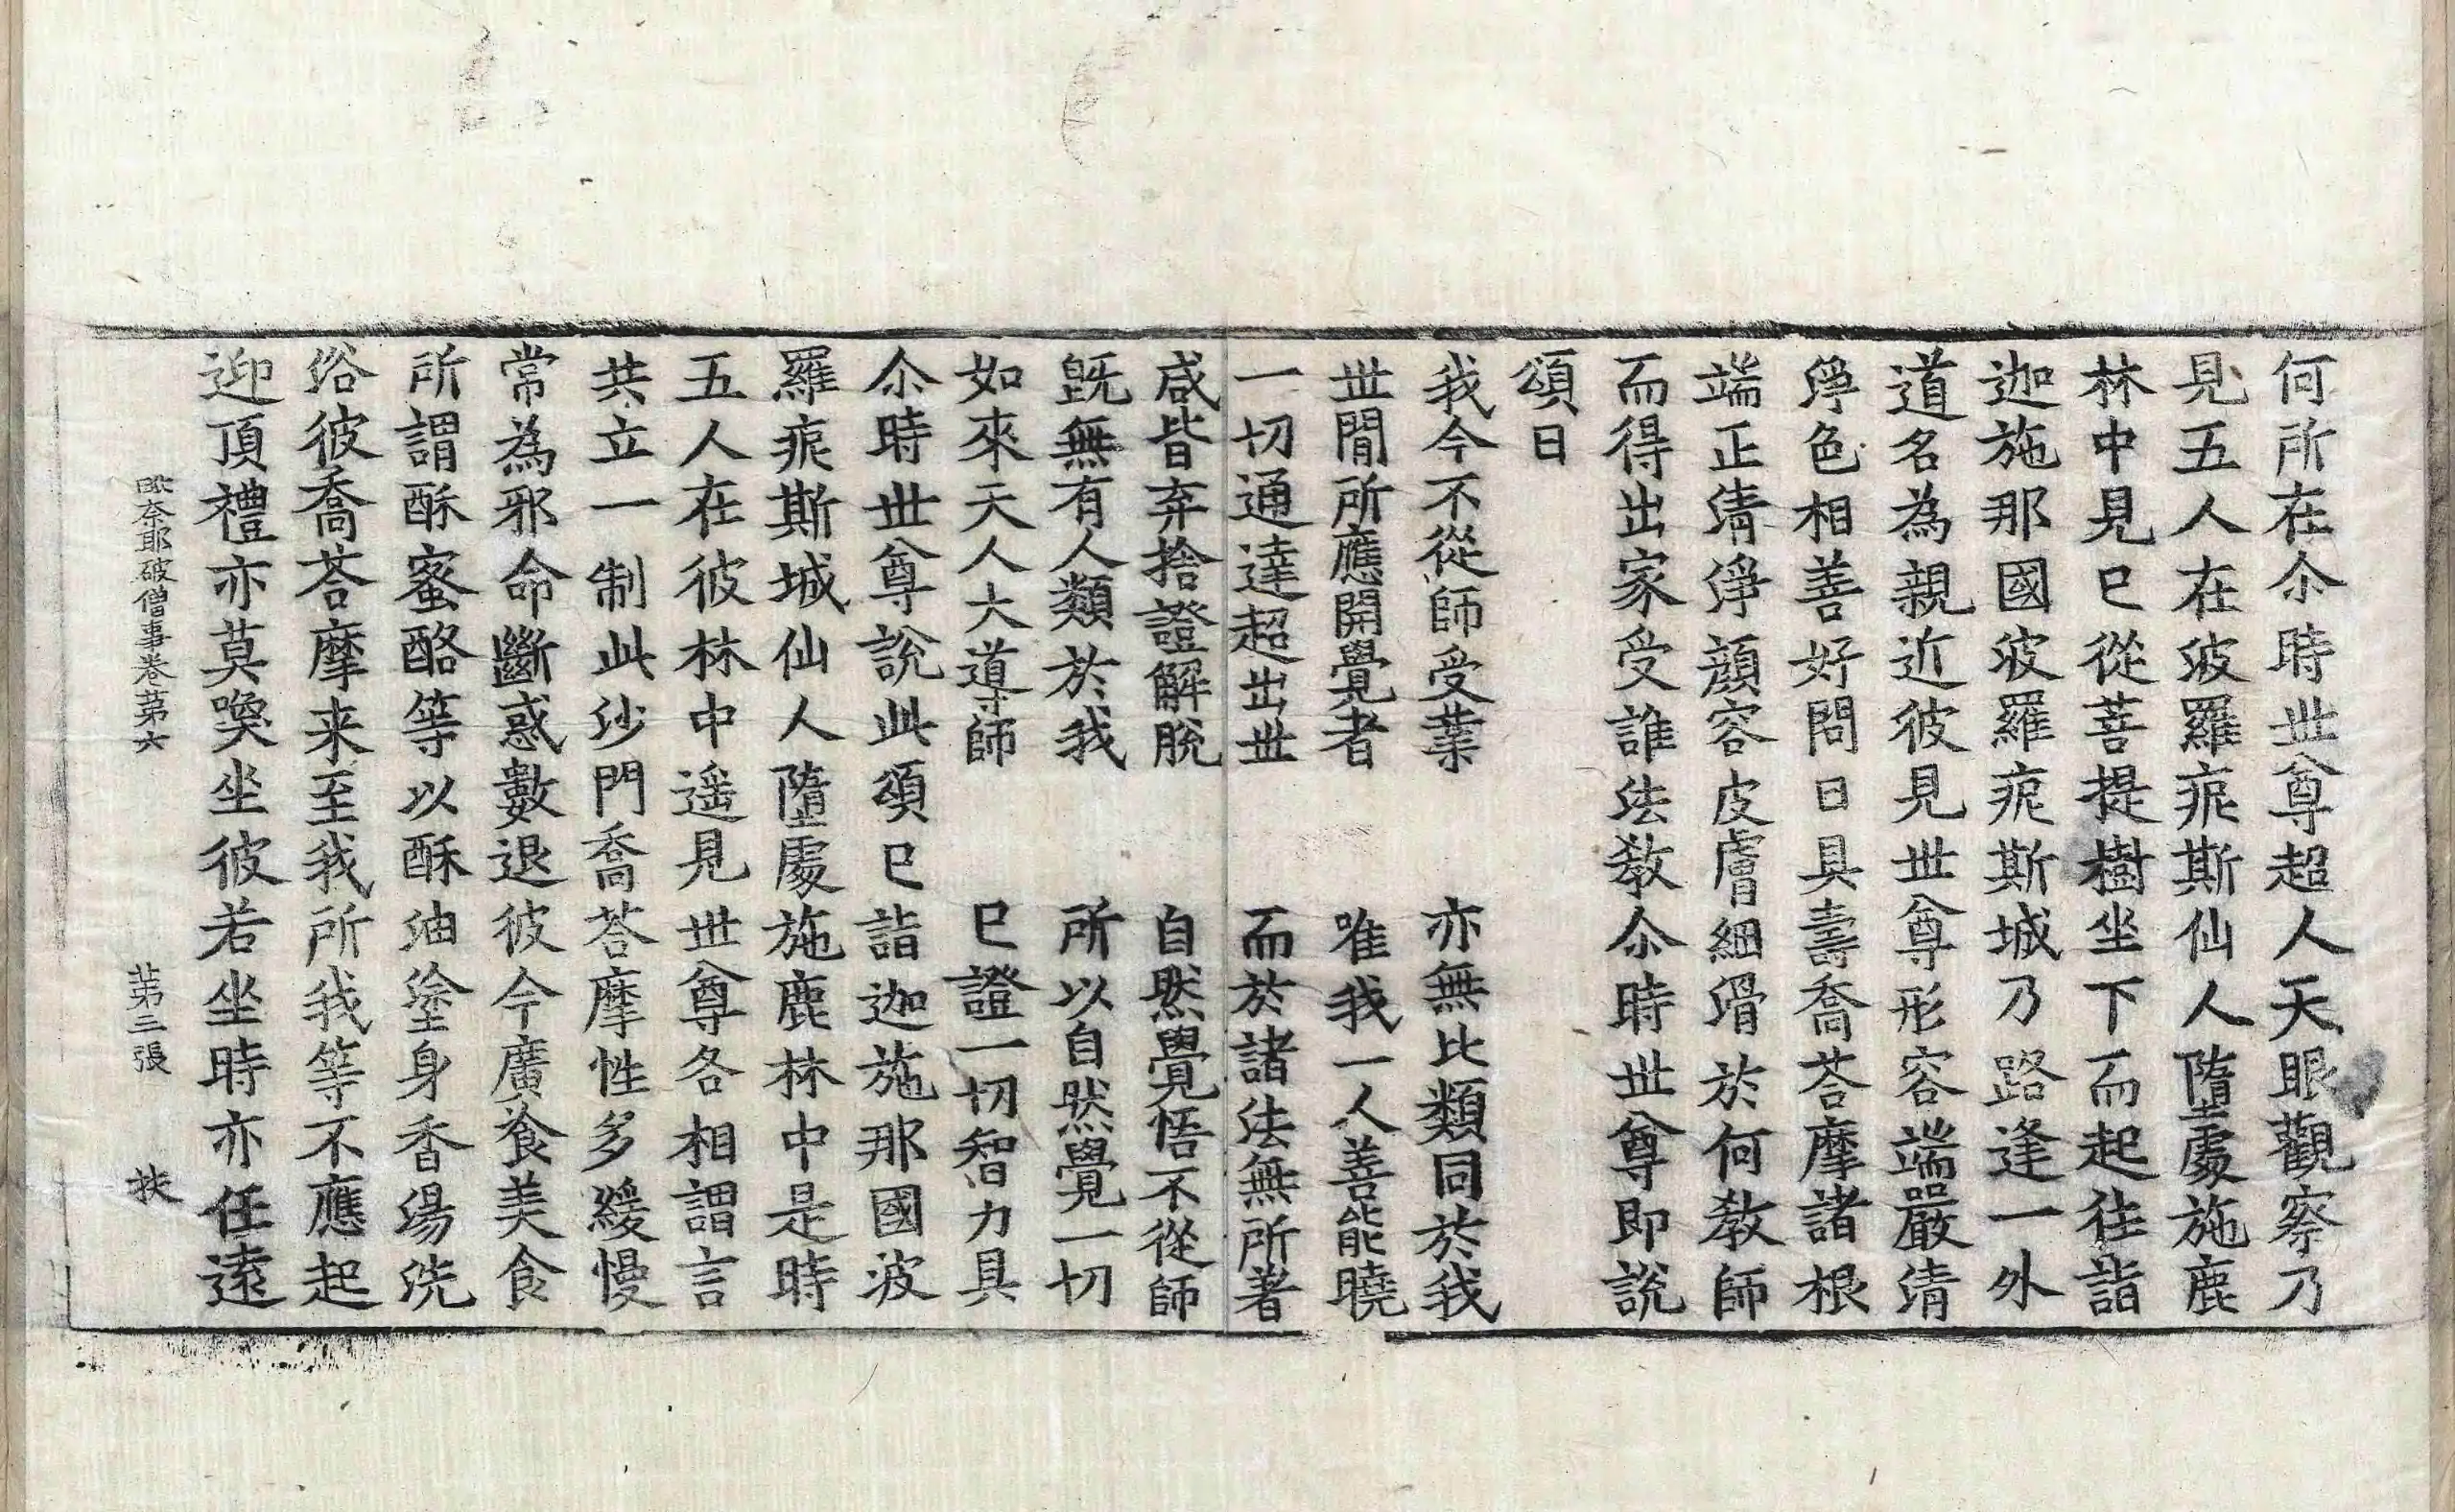 何所在尒時世尊超人天眼觀察乃
見五人在波羅痆斯仙人墮處施鹿
林中見已從菩提樹坐下而起往詣
迦施那國波羅痆斯城乃路逢一外
道名為親近彼見世尊形容端嚴清
淨色相善好問曰具壽喬荅摩諸根
端正清淨顏容皮膚細滑於何教師
而得出家受誰法教尒時世尊即說
頌曰
我今不從師受業　亦無比類同於我
世間所應開覺者　唯我一人善能曉
一切通達超出世　而於諸法無所著
咸皆弃捨證解脫　自然覺悟不從師
旣無有人類於我　所以自然覺一切
如來天人大導師　已證一切智力具
尒時世尊說此頌已詣迦施那國波
羅痆斯城仙人墮處施鹿林中是時
五人在彼林中遥見世尊各相謂言
共立一制此沙門喬荅摩性多緩慢
常為邪命斷惑數退彼今廣飡美食
所謂酥蜜酪等以酥油塗身香湯洗
浴彼喬荅摩来至我所我等不應起
迎頂禮亦莫喚坐彼若坐時亦任遠
毗奈耶破僧事卷苐六　苐三張　扶